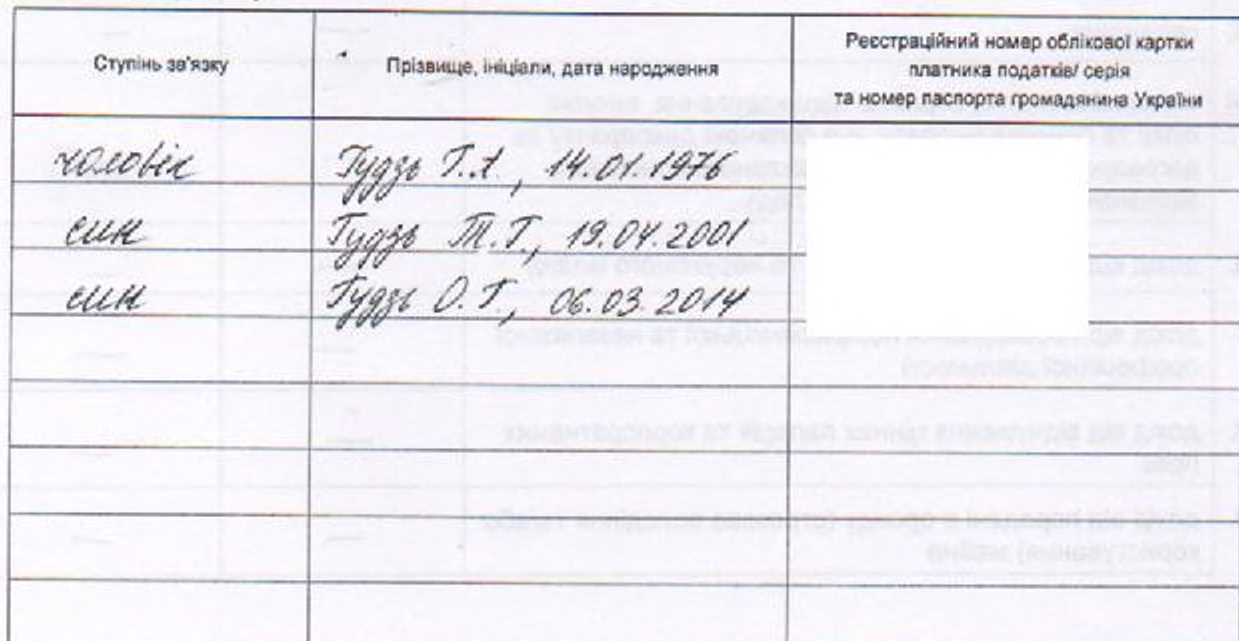 Ступінь зв'язку
Прізвище, ініціали, дата народження
Реєстраційний номер облікової картки
платника податків/ серія
та номер паспорта громадянина України
чоловік Гудзь Г.А., 14.01.1976
син Гудзь Т.Г., 19.04.2001
син Гудзь О.Г., 06.03.2014